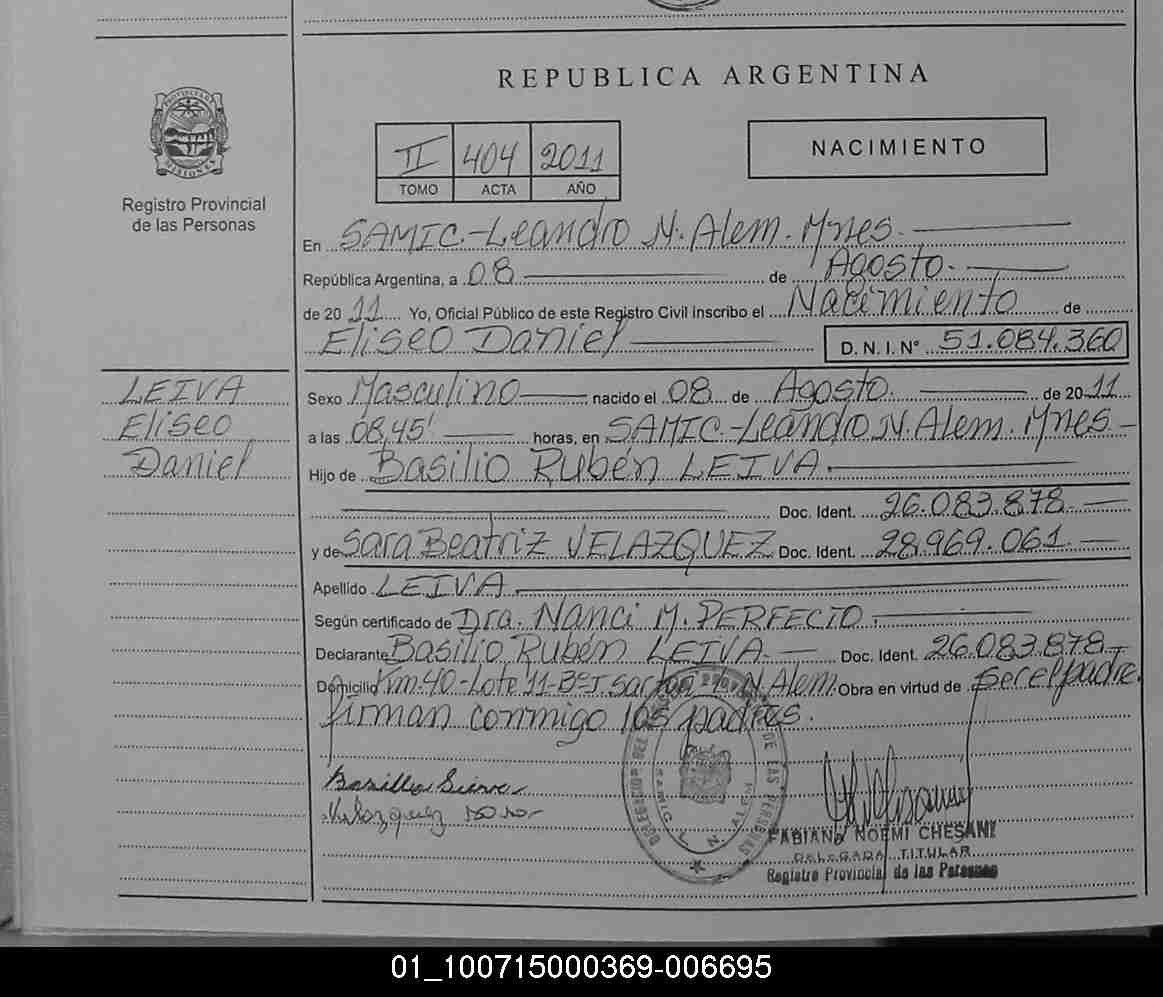 REPUBLICA ARGENTINA
PROVINCIA DE MISIONES
Registro Provincial
de las Personas
II 404 2011
TOMO ACTA AÑO
NACIMIENTO
En SAMIC.-Leandro N. Alem. Mnes.
República Argentina, a 08 de Agosto.
de 2011 Yo, Oficial Público de este Registro Civil inscribo el Nacimiento de
Eliseo Daniel D.N.I.N° 51.084.360
LEIVA
Eliseo
Daniel
Sexo Masculino nacido el 08 de Agosto. de 2011
a las 08,45' horas, en SAMIC.-Leandro N. Alem. Mnes.
Hijo de Basilio Rubén LEIVA.
Doc. Ident. 26.083.878.
y de Sara Beatriz VELAZQUEZ Doc. Ident. 28.969.061
Apellido LEIVA.
Según certificado de Dra. Nanci M. PERFECTO.
Declarante Basilio Rubén LEIVA. Doc. Ident. 26.083.878
Domicilio Km.40-Lote 11-B° L. N. Alem. Obra en virtud de ser el padre.
firman conmigo los padres.
Velazquez
SAMIC L. N. ALEM
DE LAS PERSONAS
FABIANA NOEMI CHESANI
DELEGADA TITULAR
Registro Provincial de las Personas
01_100715000369-006695